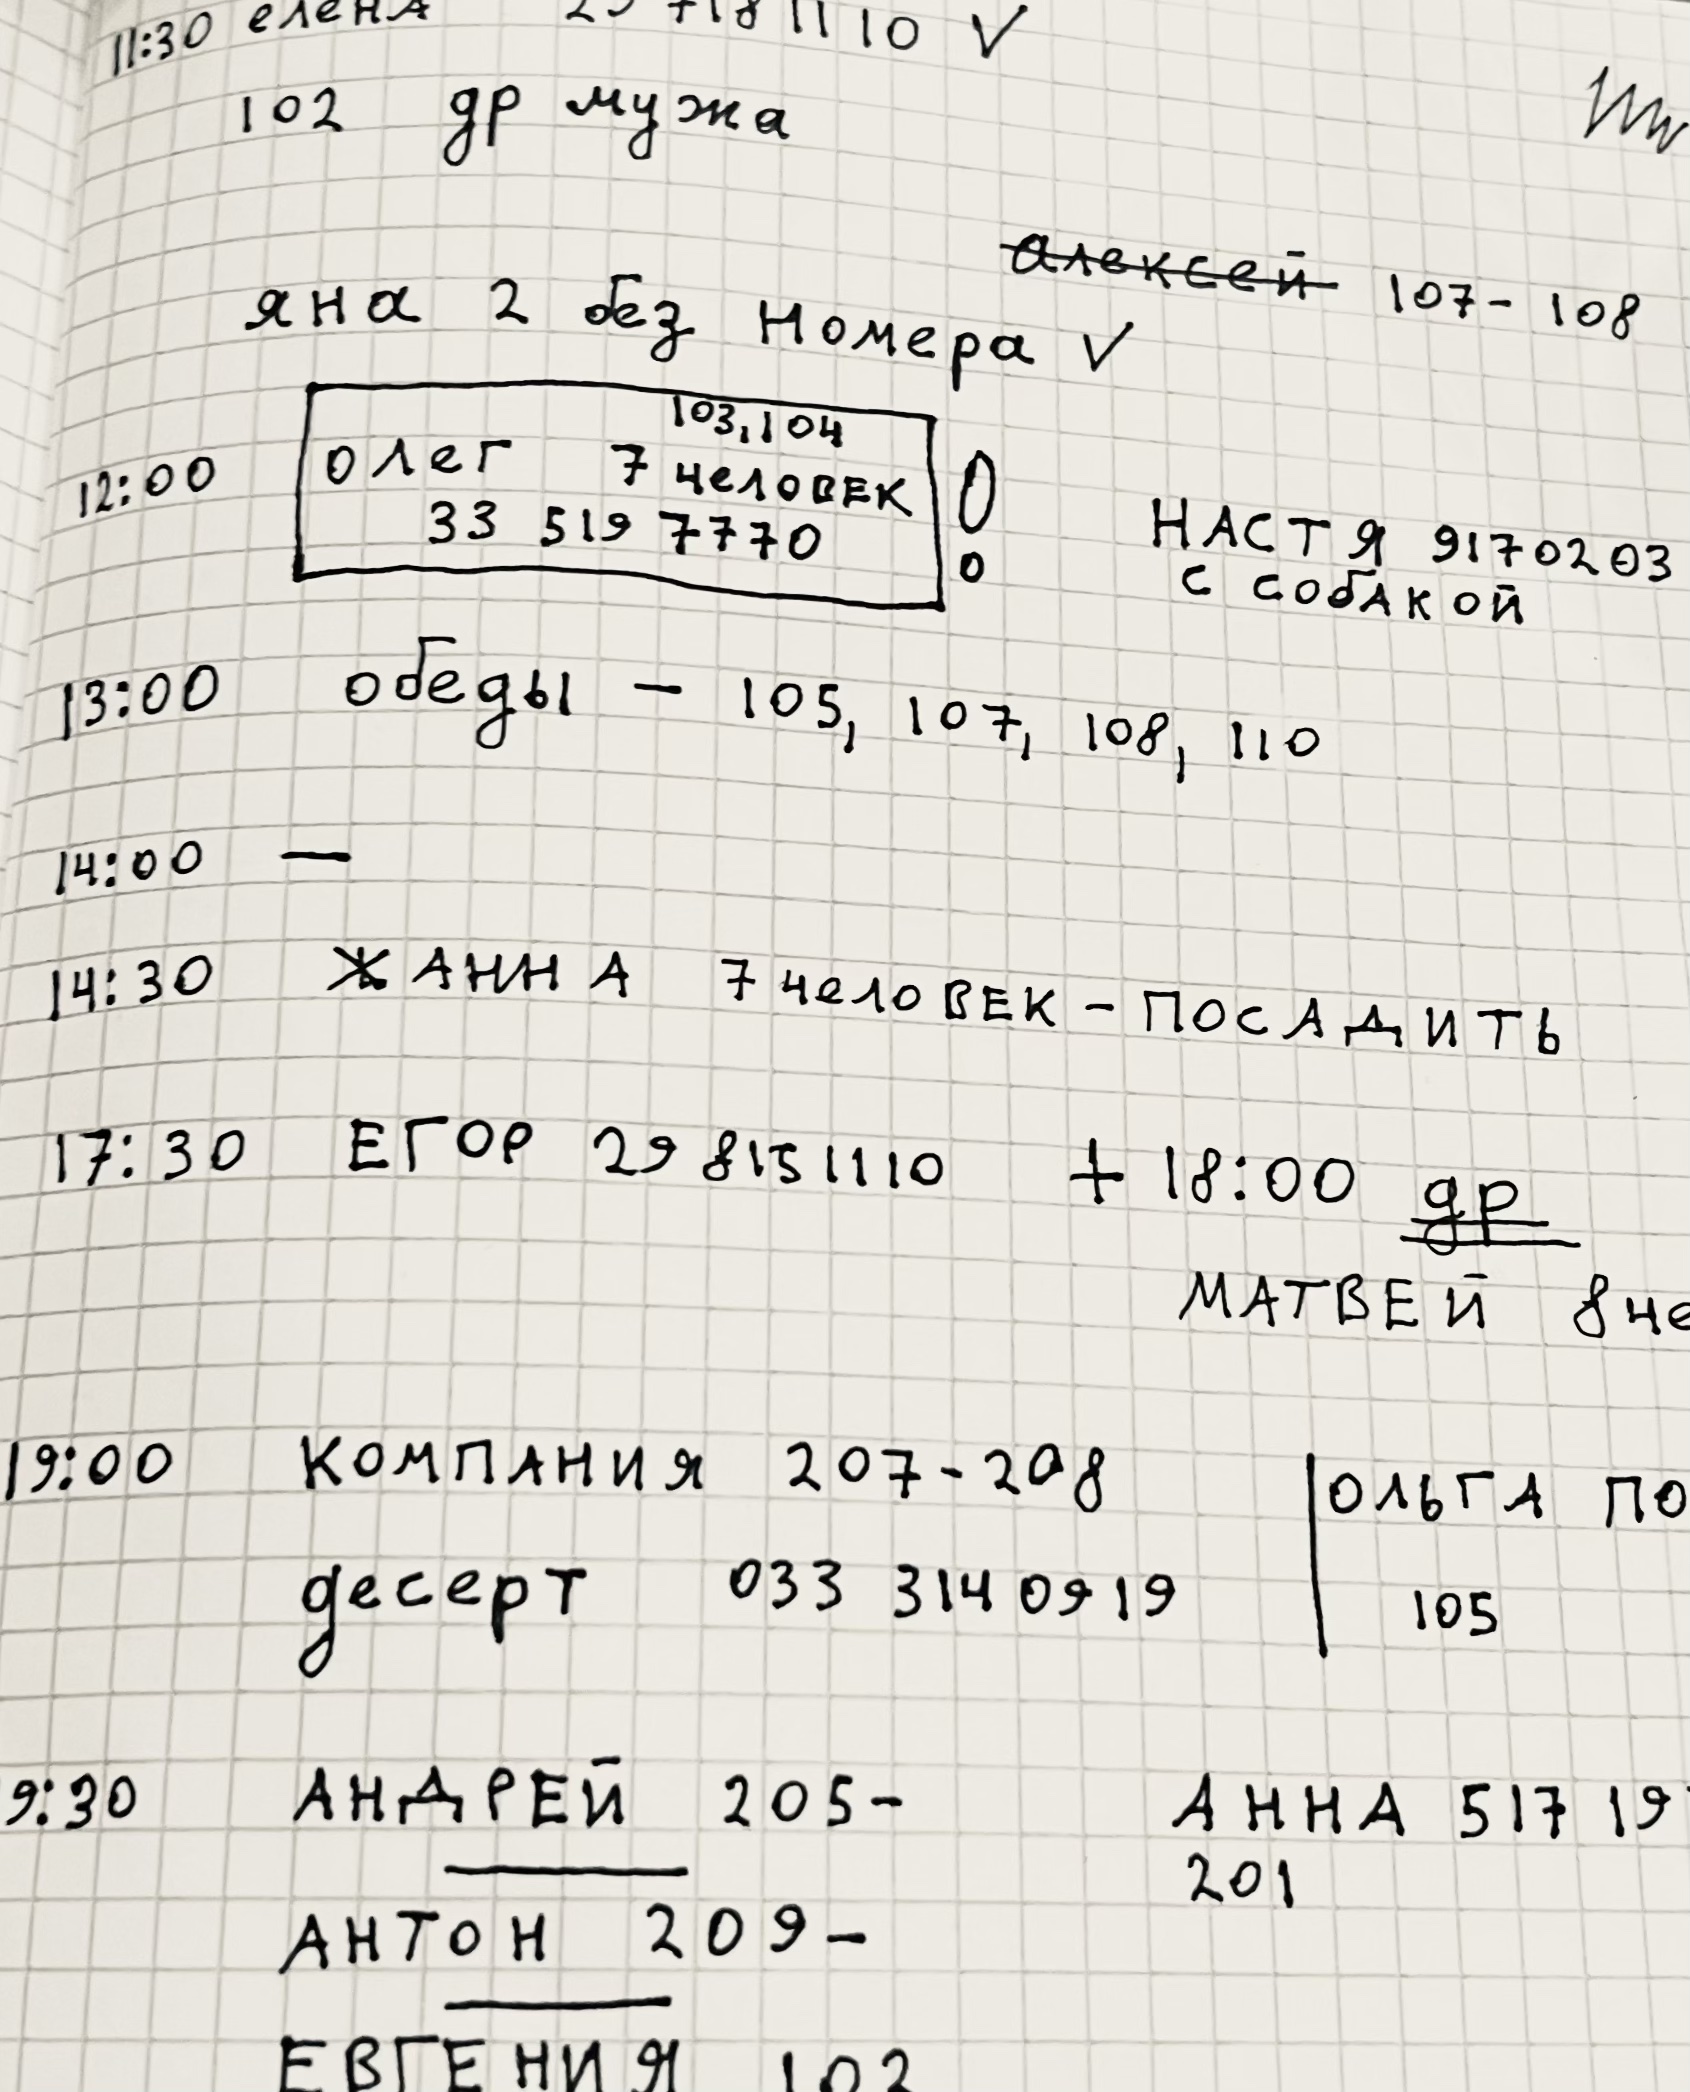 11:30 елена 29 718 11 10 V
102 др мужа
алексей 107-108
яна 2 без Номера V
103,104
12:00 олег 7 человек !
33 519 7770
НАСТЯ 9170203
с собакой
13:00 обеды - 105, 107, 108, 110
14:00 —
14:30 ЖАННА 7 человек - ПОСАДИТЬ
17:30 ЕГОР 29 8151110 + 18:00 др
МАТВЕЙ 8 че
19:00 КОМПАНИЯ 207-208 ОЛЬГА ПО
десерт 033 314 09 19 105
9:30 АНДРЕЙ 205- АННА 517 19
201
АНТОН 209-
ЕВГЕНИЯ 102